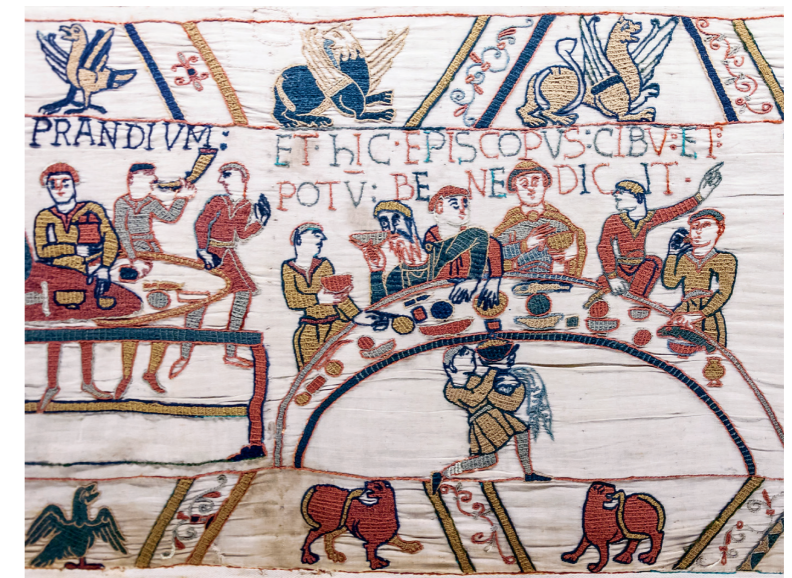 PRANDIVM:
ET·hIC·EPISCOPVS:CIBV:ET:
POTV: BENEDICIT·